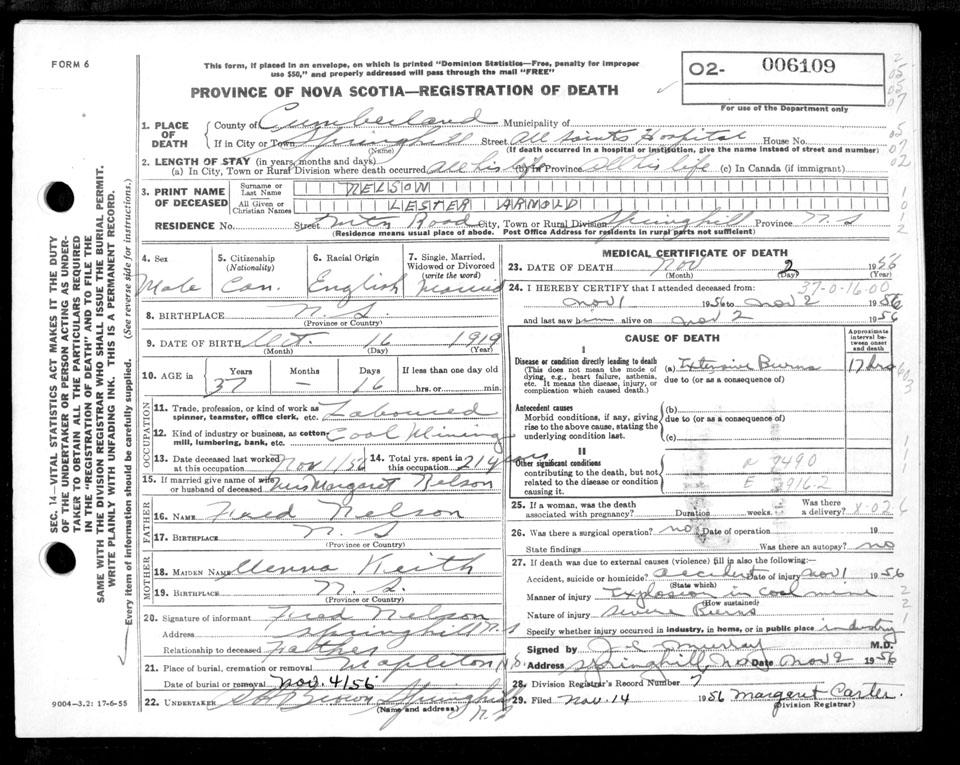 FORM 6
This form, if placed in an envelope, on which is printed "Dominion Statistics—Free, penalty for improper
use $50," and properly addressed will pass through the mail "FREE"
PROVINCE OF NOVA SCOTIA—REGISTRATION OF DEATH
O2- 006109
For use of the Department only
SEC. 14—VITAL STATISTICS ACT MAKES IT THE DUTY
OF THE UNDERTAKER OR PERSON ACTING AS UNDER-
TAKER TO OBTAIN ALL THE PARTICULARS REQUIRED
IN THE "REGISTRATION OF DEATH" AND TO FILE THE
SAME WITH THE DIVISION REGISTRAR WHO SHALL ISSUE THE BURIAL PERMIT.
WRITE PLAINLY WITH UNFADING INK. THIS IS A PERMANENT RECORD.
Every item of information should be carefully supplied. (See reverse side for instructions.)
1. PLACE OF DEATH County of Cumberland Municipality of
If in City or Town Springhill (Name) Street All Saints Hospital House No.
(If death occurred in a hospital or institution, give the name instead of street and number)
2. LENGTH OF STAY (in years, months and days)
(a) In City, Town or Rural Division where death occurred all his life (b) in Province all his life (c) In Canada (if immigrant)
3. PRINT NAME OF DECEASED Surname or Last Name NELSON
All Given or Christian Names LESTER ARNOLD
RESIDENCE No. Street Road City, Town or Rural Division Springhill Province N.S
(Residence means usual place of abode. Post Office Address for residents in rural parts not sufficient)
4. Sex Male
5. Citizenship (Nationality) Can.
6. Racial Origin English
7. Single, Married, Widowed or Divorced (write the word) Married
8. BIRTHPLACE N.S.
(Province or Country)
9. DATE OF BIRTH Oct. 16 1919
(Month) (Day) (Year)
10. AGE in Years 37 Months — Days 16 If less than one day old hrs. or min.
OCCUPATION
11. Trade, profession, or kind of work as spinner, teamster, office clerk, etc. Laboured
12. Kind of industry or business, as cotton mill, lumbering, bank, etc. Coal Mining
13. Date deceased last worked at this occupation Nov 1/56 14. Total yrs. spent in this occupation 21 years
15. If married give name of wife or husband of deceased Mrs Margaret Nelson
FATHER
16. NAME Fred Nelson
17. BIRTHPLACE N.S.
(Province or Country)
MOTHER
18. MAIDEN NAME Keith
19. BIRTHPLACE N.S.
(Province or Country)
20. Signature of informant Fred Nelson
Address Springhill N.S
Relationship to deceased Father
21. Place of burial, cremation or removal Mapleton N.S.
Date of burial or removal Nov. 4/56
22. UNDERTAKER Brown Springhill N.S
(Name and address)
9004—3.2: 17-6-55
MEDICAL CERTIFICATE OF DEATH
23. DATE OF DEATH Nov 2 1956
(Month) (Day) (Year)
24. I HEREBY CERTIFY that I attended deceased from: 37-0-16-00
Nov 1 1956 to Nov 2 1956
and last saw him alive on Nov 2 1956
CAUSE OF DEATH
Approximate interval between onset and death
I
Disease or condition directly leading to death
(This does not mean the mode of
dying, e.g., heart failure, asthenia,
etc. It means the disease, injury, or
complication which caused death.)
(a) Extensive Burns 17 hrs
due to (or as a consequence of)
Antecedent causes
Morbid conditions, if any, giving
rise to the above cause, stating the
underlying condition last.
(b)
due to (or as a consequence of)
(c)
II
Other significant conditions
contributing to the death, but not
related to the disease or condition
causing it.
N 9490
E 916.2
25. If a woman, was the death associated with pregnancy? Duration weeks. Was there a delivery? X-02
26. Was there a surgical operation? no Date of operation 19
State findings Was there an autopsy? no
27. If death was due to external causes (violence) fill in also the following:—
Accident, suicide or homicide? accident Date of injury Nov 1 1956
(State which)
Manner of injury Explosion in coal mine
(How sustained)
Nature of injury Severe Burns
Specify whether injury occurred in industry, in home, or in public place industry
Signed by M.D.
Address Springhill N.S. Date Nov 2 1956
28. Division Registrar's Record Number 7
29. Filed Nov. 14 1956 Margaret Carter.
(Division Registrar)